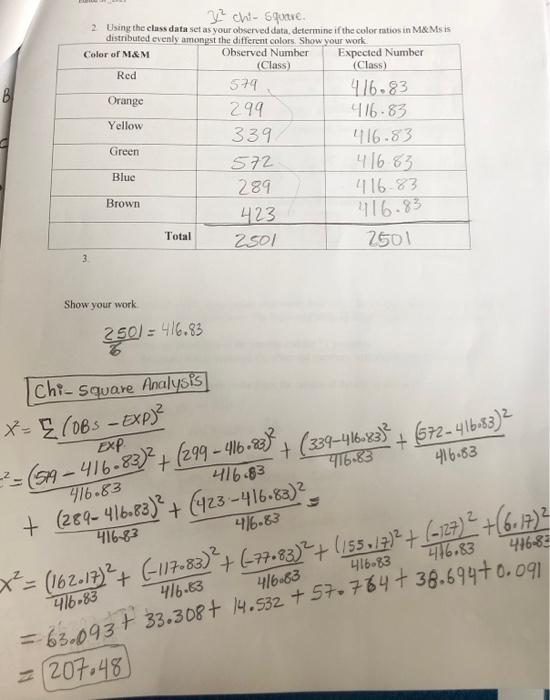 χ² chi-square.
2. Using the class data set as your observed data, determine if the color ratios in M&Ms is
distributed evenly amongst the different colors. Show your work.
Color of M&M Observed Number (Class) Expected Number (Class)
Red 579 416.83
Orange 299 416.83
Yellow 339 416.83
Green 572 416.83
Blue 289 416.83
Brown 423 416.83
Total 2501 2501
3.
Show your work.
2501/6 = 416.83
Chi-Square Analysis
X² = Σ (OBS - EXP)²/EXP
² = (579 - 416.83)²/416.83 + (299 - 416.83)²/416.83 + (339-416.83)²/416.83 + (572-416.83)²/416.83
+ (289-416.83)²/416.83 + (423-416.83)²/416.83 =
X² = (162.17)²/416.83 + (-117.83)²/416.83 + (-77.83)²/416.83 + (155.17)²/416.83 + (-127)²/416.83 + (6.17)²/416.83
= 63.093 + 33.308 + 14.532 + 57.764 + 38.694 + 0.091
= 207.48